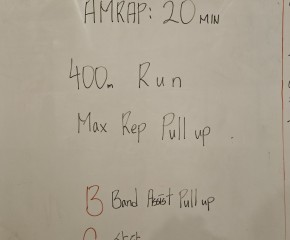 AMRAP: 20 MIN
400m Run
Max Rep Pull up
B Band Assist Pull up